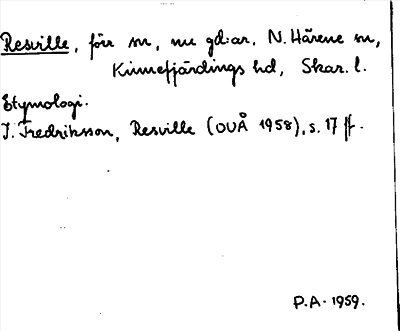 Resville, förr sn, nu gd:ar, N. Härene sn,
Kinnefjärdings hd, Skar. l.
Etymologi.
I. Fredriksson, Resville (OUÅ 1958), s. 17 ff.
P.A. 1959.